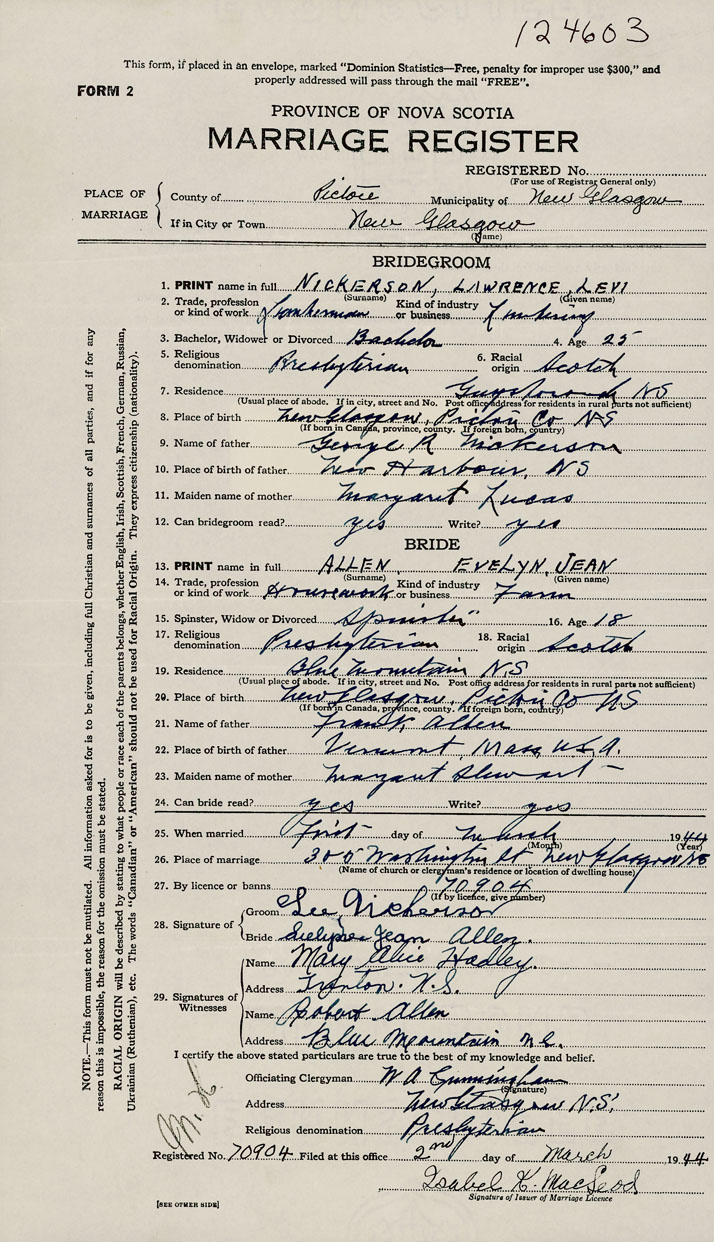 124603
This form, if placed in an envelope, marked "Dominion Statistics—Free, penalty for improper use $300," and
properly addressed will pass through the mail "FREE".
FORM 2
PROVINCE OF NOVA SCOTIA
MARRIAGE REGISTER
REGISTERED No.
(For use of Registrar General only)
PLACE OF MARRIAGE
County of Pictou Municipality of New Glasgow
If in City or Town New Glasgow
(Name)
BRIDEGROOM
1. PRINT name in full NICKERSON, LAWRENCE, LEVI
(Surname) (Given name)
2. Trade, profession or kind of work Lumberman Kind of industry or business Lumbering
3. Bachelor, Widower or Divorced Bachelor 4. Age 25
5. Religious denomination Presbyterian 6. Racial origin Scotch
7. Residence Guysborough NS
(Usual place of abode. If in city, street and No. Post office address for residents in rural parts not sufficient)
8. Place of birth New Glasgow, Pictou Co NS
(If born in Canada, province, county. If foreign born, country)
9. Name of father George R Nickerson
10. Place of birth of father New Harbour, NS
11. Maiden name of mother Margaret Lucas
12. Can bridegroom read? yes Write? yes
BRIDE
13. PRINT name in full ALLEN EVELYN, JEAN
(Surname) (Given name)
14. Trade, profession or kind of work Housework Kind of industry or business Farm
15. Spinster, Widow or Divorced Spinster 16. Age 18
17. Religious denomination Presbyterian 18. Racial origin Scotch
19. Residence Blue Mountain N.S
(Usual place of abode. If in city, street and No. Post office address for residents in rural parts not sufficient)
20. Place of birth New Glasgow, Pictou Co NS
(If born in Canada, province, county. If foreign born, country)
21. Name of father Frank Allen
22. Place of birth of father Vermont, Mass, U.S.A.
23. Maiden name of mother Margaret Stewart
24. Can bride read? yes Write? yes
25. When married First day of March 1944
(Month) (Year)
26. Place of marriage 300 Washington St New Glasgow NS
(Name of church or clergyman's residence or location of dwelling house)
27. By licence or banns 70904
(If by licence, give number)
28. Signature of
Groom Lee Nickerson
Bride Jean Allen.
29. Signatures of Witnesses
Name Mary Alice Hadley.
Address Trenton. N.S.
Name Robert Allen
Address Blue Mountain N.S.
I certify the above stated particulars are true to the best of my knowledge and belief.
Officiating Clergyman W A Cunningham
(Signature)
Address New Glasgow N.S.
Religious denomination Presbyterian
Registered No. 70904 Filed at this office 2nd day of March 1944
Isabel K. MacLeod
Signature of Issuer of Marriage Licence
[SEE OTHER SIDE]
NOTE.—This form must not be mutilated. All information asked for is to be given, including full Christian and surnames of all parties, and if for any
reason this is impossible, the reason for the omission must be stated.
RACIAL ORIGIN will be described by stating to what people or race each of the parents belongs, whether English, Irish, Scottish, French, German, Russian,
Ukrainian (Ruthenian), etc. The words "Canadian" or "American" should not be used for Racial Origin. They express citizenship (nationality).